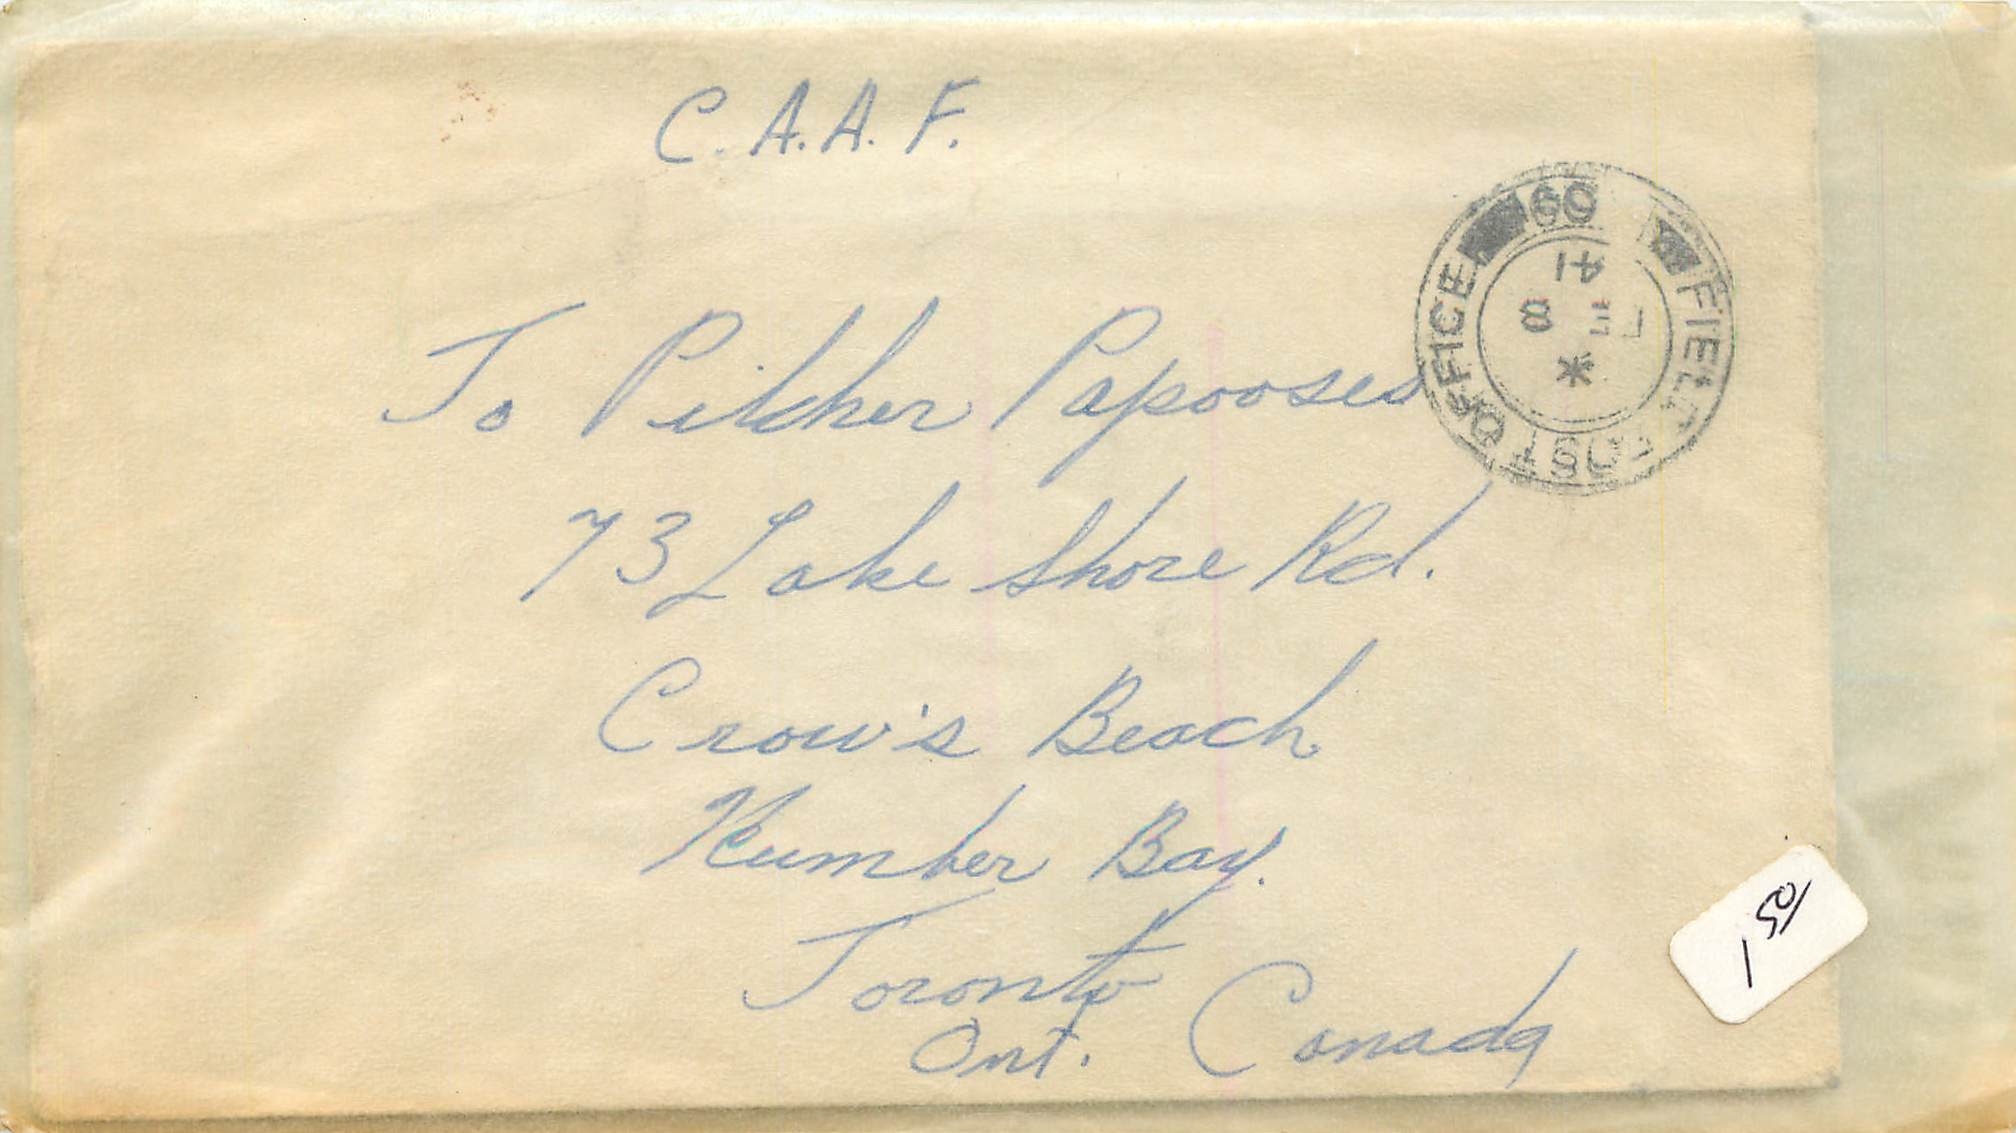 C.A.A.F.
FIELD POST OFFICE
41
8
To Pilcher Papooses
73 Lake Shore Rd.
Crow's Beach
Humber Bay.
Toronto
Ont. Canada
1 50